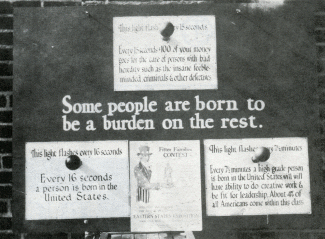 This light flashes every 15 seconds
Every 15 seconds $100 of your money
goes for the care of persons with bad
heredity such as the insane feeble-
minded, criminals & other defectives
Some people are born to
be a burden on the rest.
This light flashes every 16 seconds
Every 16 seconds
a person is born in the
United States.
Fitter Families
CONTEST
EASTERN STATES EXPOSITION
This light flashes every 7½ minutes
Every 7½ minutes a high grade person
is born in the United States who will
have ability to do creative work &
be fit for leadership. About 4% of
all Americans come within this class.